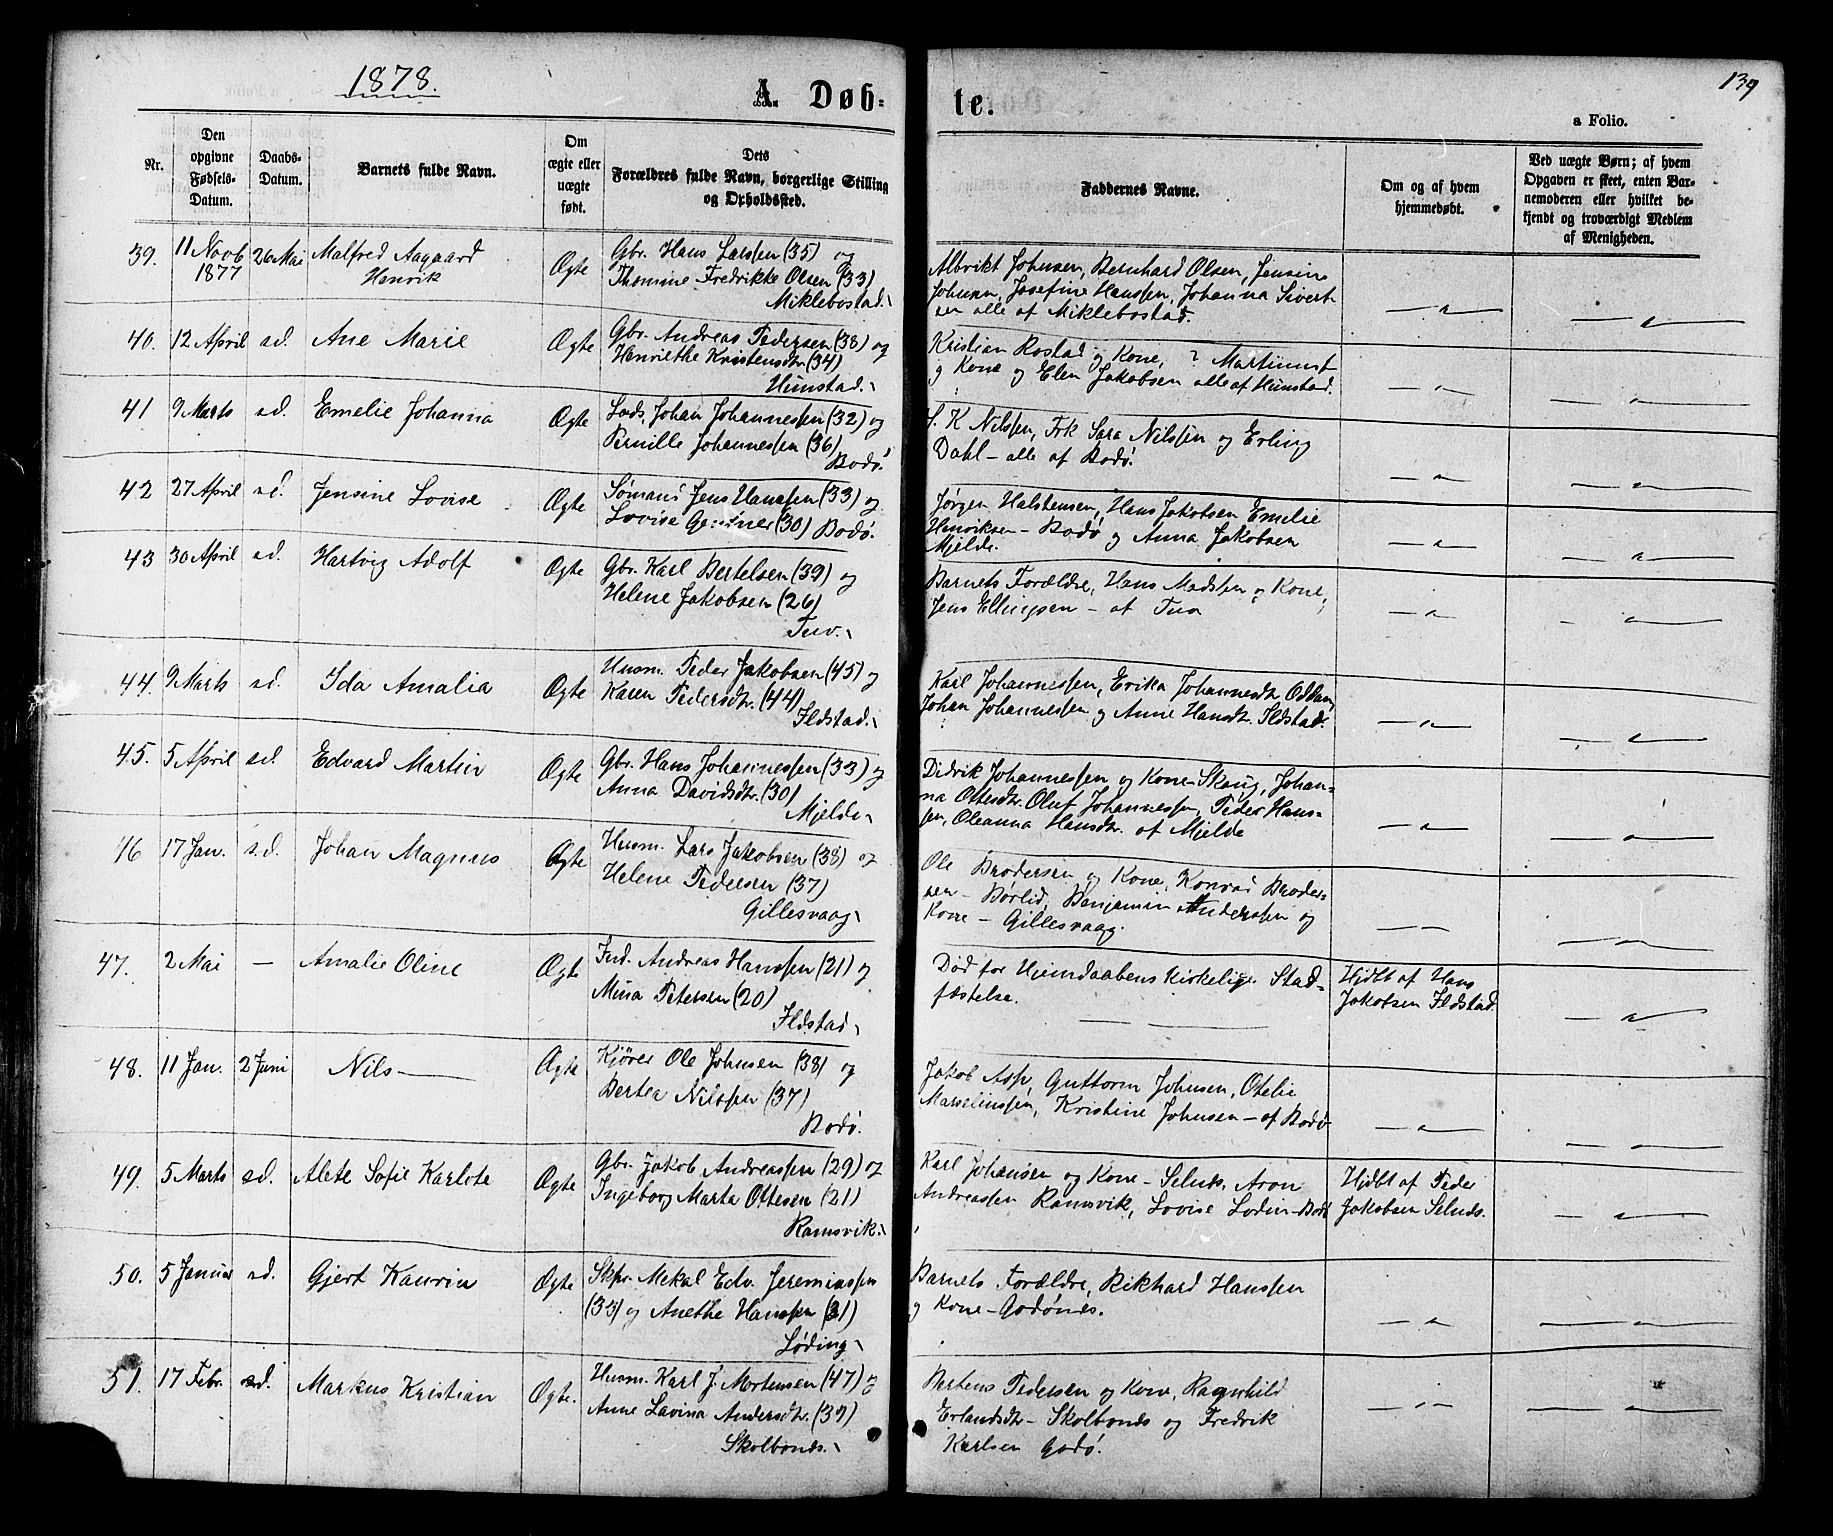 1878.
139
A Døb-
te.
a Folio.
Nr.
Den
opgivne
Fødsels-
Datum.
Daabs-
Datum.
Barnets fulde Navn.
Om
ægte eller
uægte
født.
Dets
Forældres fulde Navn, borgerlige Stilling
og Opholdssted.
Faddernes Navne.
Om og af hvem
hjemmedøbt.
Ved uægte Børn; af hvem
Opgaven er skeet, enten Bar-
nemoderen eller hvilket be-
kjendt og troværdigt Medlem
af Menigheden.
39. 11 Novb 1877 26 Mai Malfred Aagaard
Henrik
Ægte
Gbr. Hans Larssen (35) og
Thomine Fredrikke Olsen (33)
Miklebostad.
Albrikt Johnsen, Bernhard Olsen, Jensine
Johnsen, Josefine Hanssen, Johanna Sivert
sen alle af Miklebostad.
— " — — " —
40. 12 April sd. Ane Marie Ægte
Gbr. Andreas Pedersen (38) og
Henriethe Kristensdtr. (34)
Hunstad.
Kristian Rostad og Kone, ? Martinus
og Kone og Elen Jakobsen alle af Hunstad.
— " — — " —
41 9 Marts sd. Emelie Johanna Ægte
Lods, Johan Johannessen (32) og
Pernille Johannessen (36)
Bodø.
S. K Nilssen, Frk Sara Nilssen og Erling
Dahl — alle af Bodø.
— " — — " —
42 27 April sd. Jensine Lovise Ægte
Sømand Jens Hanssen (33) og
Lovise (30) Bodø.
Jørgen Halstensen, Hans Jakobsen Emelie
Henriksen — Bodø og Anna Jakobsen
Mjelde.
— " — — " —
43 30 April sd. Hartvig Adolf Ægte
Gbr. Karl Bertelsen (39) og
Helene Jakobsen (26)
Tuv.
Barnets Forældre, Hans Madssen og Kone,
Jens Ellingsen — af Tuv
— " — — " —
44. 9 Marts sd. Ida Amalia Ægte
Husm. Peder Jakobsen (45) og
Karen Pedersdtr. (44)
Ildstad.
Karl Johannessen, Erika Johannesdtr. Oddan,
Johan Johannessen og Anne Hansdtr. Ildstad.
— " — — " —
45. 5 April sd. Edvard Martin Ægte
Gbr. Hans Johannessen (33) og
Anna Davidsdtr. (30)
Mjelde
Didrik Johannessen og Kone Skaug, Johan-
na Ottesdtr. Oluf Johannessen, Peder Hans-
sen, Oleanna Hansdtr. af Mjelde
— " — — " —
46 17 Jan. s.d. Johan Magnus Ægte
Husm. Lars Jakobsen (38) og
Helene Pedersen (37)
Gillesvaag
Ole Brodersen og Kone, Konrad Broder-
sen — Børlid, Benjamin Anderssen og
Kone — Gillesvaag.
— — — " —
47. 2 Mai — Amalie Oline Ægte
Ind. Andreas Hanssen (21) og
Mina Petersen (20)
Ildstad
Død for Hjemdaabens kirkelige Stad-
fæstelse.
— —
Hjdbt af Hans
Jakobsen Ildstad.
— " —
48. 11 Jan. 2 Juni Nils — Ægte
Kjører Ole Johnsen (38) og
Bertea Nilssen (37)
Bodø.
Jakob Asp, Guttorm Johnsen, Otelie
Marseliussen, Kristine Johnsen — af Bodø
— " — — " —
49. 5 Marts sd. Alete Sofie Karlote Ægte
Gbr. Jakob Andreassen (29) og
Ingeborg Marta Ottesen (21)
Ramsvik.
Karl Johansen og Kone — Selnes. Aron
Andreassen Ramsvik, Lovise Lodin — Bodø
Hjdbt af Peder
Jakobsen Selnes.
— " —
50. 5 Januar sd. Gjert Kaurin Ægte
Skpr. Mekal Edv. Jeremiassen
(33) og Anethe Hanssen (31)
Løding
Barnets Forældre, Rikhard Hanssen
og Kone — Godønes.
— " — — " —
51. 17 Febr. sd. Markus Kristian Ægte.
Husm. Karl J. Mortensen (47) og
Anne Lavina Andersdtr. (39)
Skolbones.
Bertens Pedersen og Kone, Ragnhild
Erlandsdtr. — Skolbones og Fredrik
Karlsen Godø.
— " — — " —